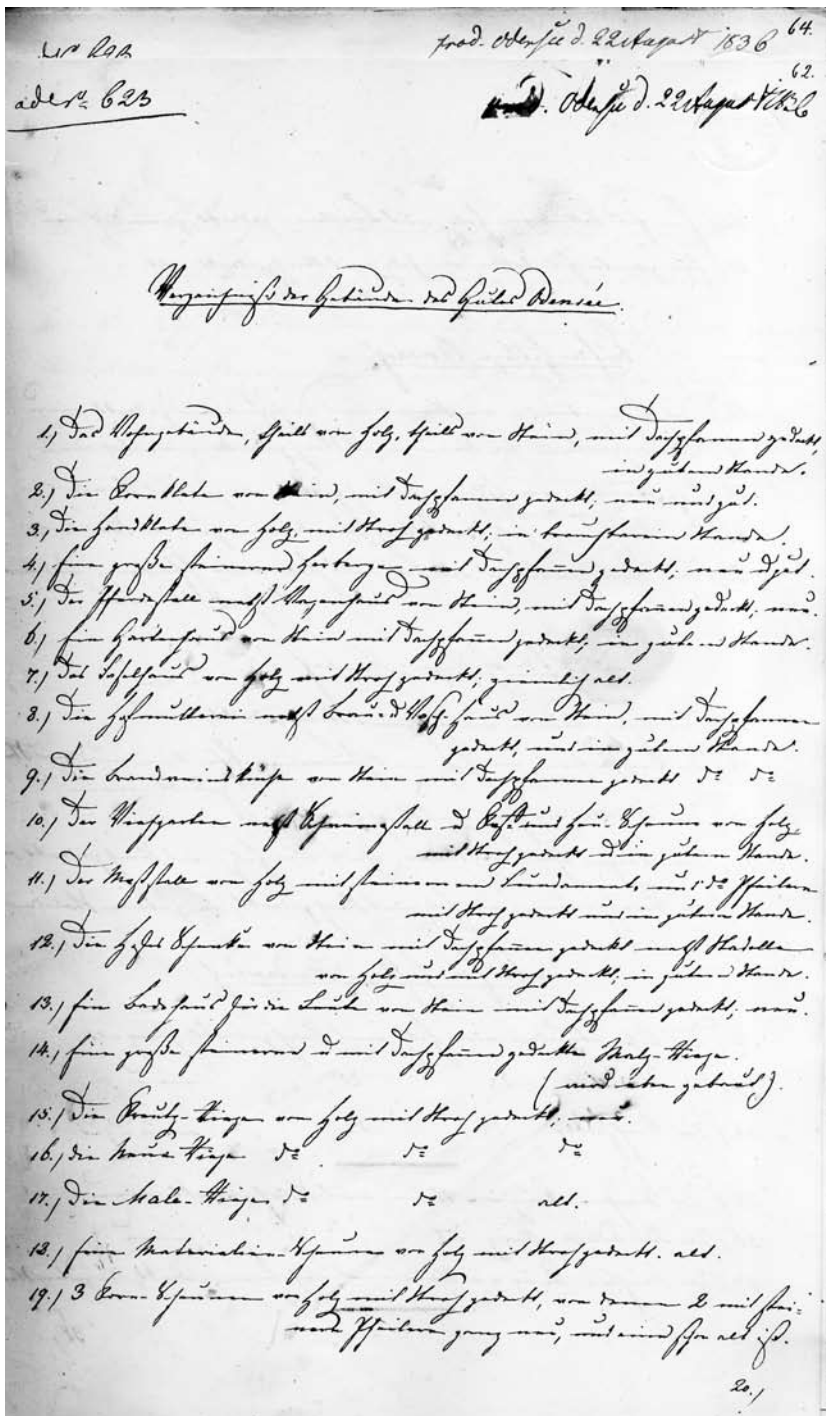 64.
prod. Odensee d. 22 August 1836
62.
ad No 623
Odensee d. 22 August 1836
Verzeichniß der Gebäude des Gutes Odensée.
1.) Das Wohngebäude, theils von Holz, theils von Stein, mit Dachpfannen gedeckt,
in gutem Stande.
2.) Die Kornklete von Stein, mit Dachpfannen gedeckt; neu und gut.
3.) Die Handklete von Holz, mit Stroh gedeckt; in brauchbarem Stande.
4.) Eine große steinerne Herberge mit Dachpfannen gedeckt; neu u gut.
5.) Der Pferdestall nebst Wagenhaus von Stein, mit Dachpfannen gedeckt; neu.
6.) Ein Gartenhaus von Stein mit Dachpfannen gedeckt; in gutem Stande.
7.) Das Faselhaus von Holz mit Stroh gedeckt; ziemlich alt.
8.) Die Hofmutterei nebst Brau u Wasch-Haus von Stein, mit Dachpfannen
gedeckt, und in gutem Stande.
9.) Die Brandweinsküche von Stein mit Dachpfannen gedeckt do do
10.) Der Viehgarten nebst Schweinestall u und Heu-Scheune von Holz,
mit Stroh gedeckt u in gutem Stande.
11.) Der Maststall von Holz mit steinernem Fundament, und do Pfeilern
mit Stroh gedeckt und in gutem Stande.
12.) Die Hofes Schenke von Stein mit Dachpfannen gedeckt nebst Stadolle
von Holz und mit Stroh gedeckt, in gutem Stande.
13.) Ein Badehaus für die Leute von Stein mit Dachpfannen gedeckt; neu.
14.) Eine große steinerne u mit Dachpfannen gedeckte Malz-Riege.
(wird eben gebaut).
15.) Die Kreutz-Riege von Holz mit Stroh gedeckt; neu.
16.) die Neue Riege do do do
17.) Die Riege do do alt.
18.) Eine Materialien-Scheune von Holz mit Stroh gedeckt. alt.
19.) 3 Korn-Scheunen von Holz mit Stroh gedeckt, von denen 2 mit stei-
nern Pfeilern ganz neu, und eine schon alt ist.
20.)